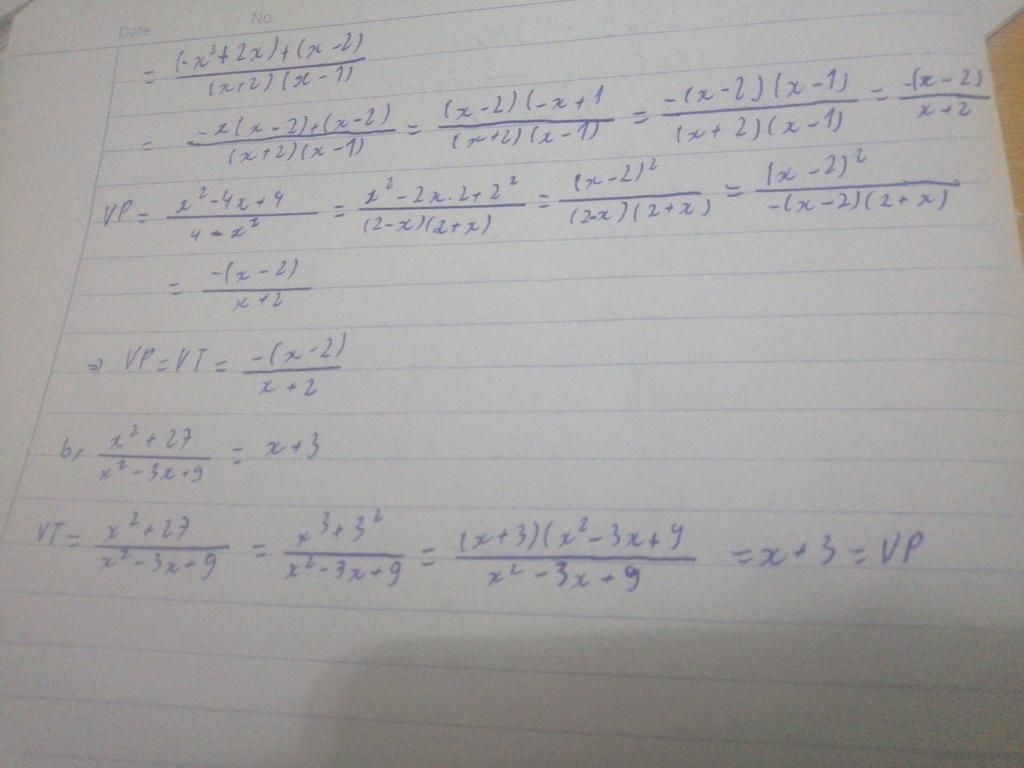 Date No.
= \frac{(-x^2+2x)+(x-2)}{(x+2)(x-1)}
= \frac{-x(x-2)+(x-2)}{(x+2)(x-1)} = \frac{(x-2)(-x+1}{(x+2)(x-1)} = \frac{-(x-2)(x-1)}{(x+2)(x-1)} = \frac{-(x-2)}{x+2}
VP = \frac{x^2-4x+4}{4-x^2} = \frac{x^2-2x.2+2^2}{(2-x)(2+x)} = \frac{(x-2)^2}{(2-x)(2+x)} = \frac{(x-2)^2}{-(x-2)(2+x)}
= \frac{-(x-2)}{x+2}
⇒ VP=VT = \frac{-(x-2)}{x+2}
b, \frac{x^2+27}{x^2-3x+9} = x+3
VT = \frac{x^2+27}{x^2-3x+9} = \frac{x^3+3^2}{x^2-3x+9} = \frac{(x+3)(x^2-3x+9}{x^2-3x+9} = x+3 = VP